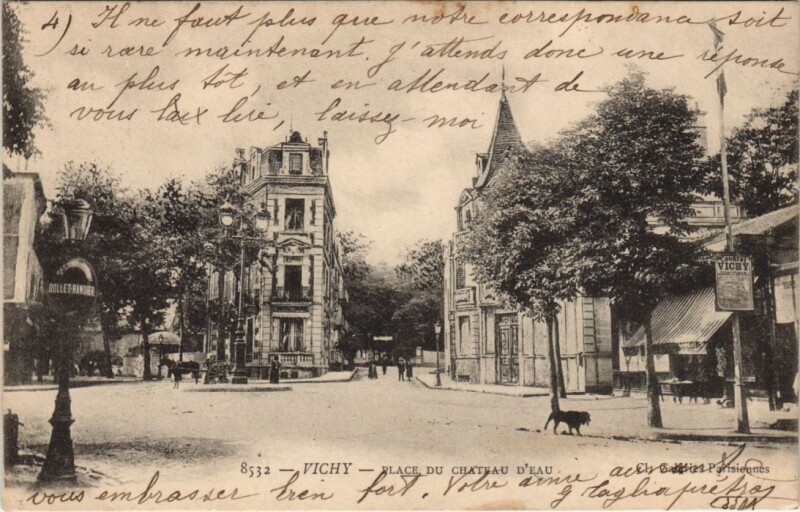 4) Il ne faut plus que notre correspondance soit
si rare maintenant. J'attends donc une réponse
au plus tôt, et en attendant de
vous lire, laissez-moi
DOLLET-RAN
VICHY
8532 - VICHY - PLACE DU CHATEAU D'EAU
Parisiennes
vous embrasser bien fort. Votre amie